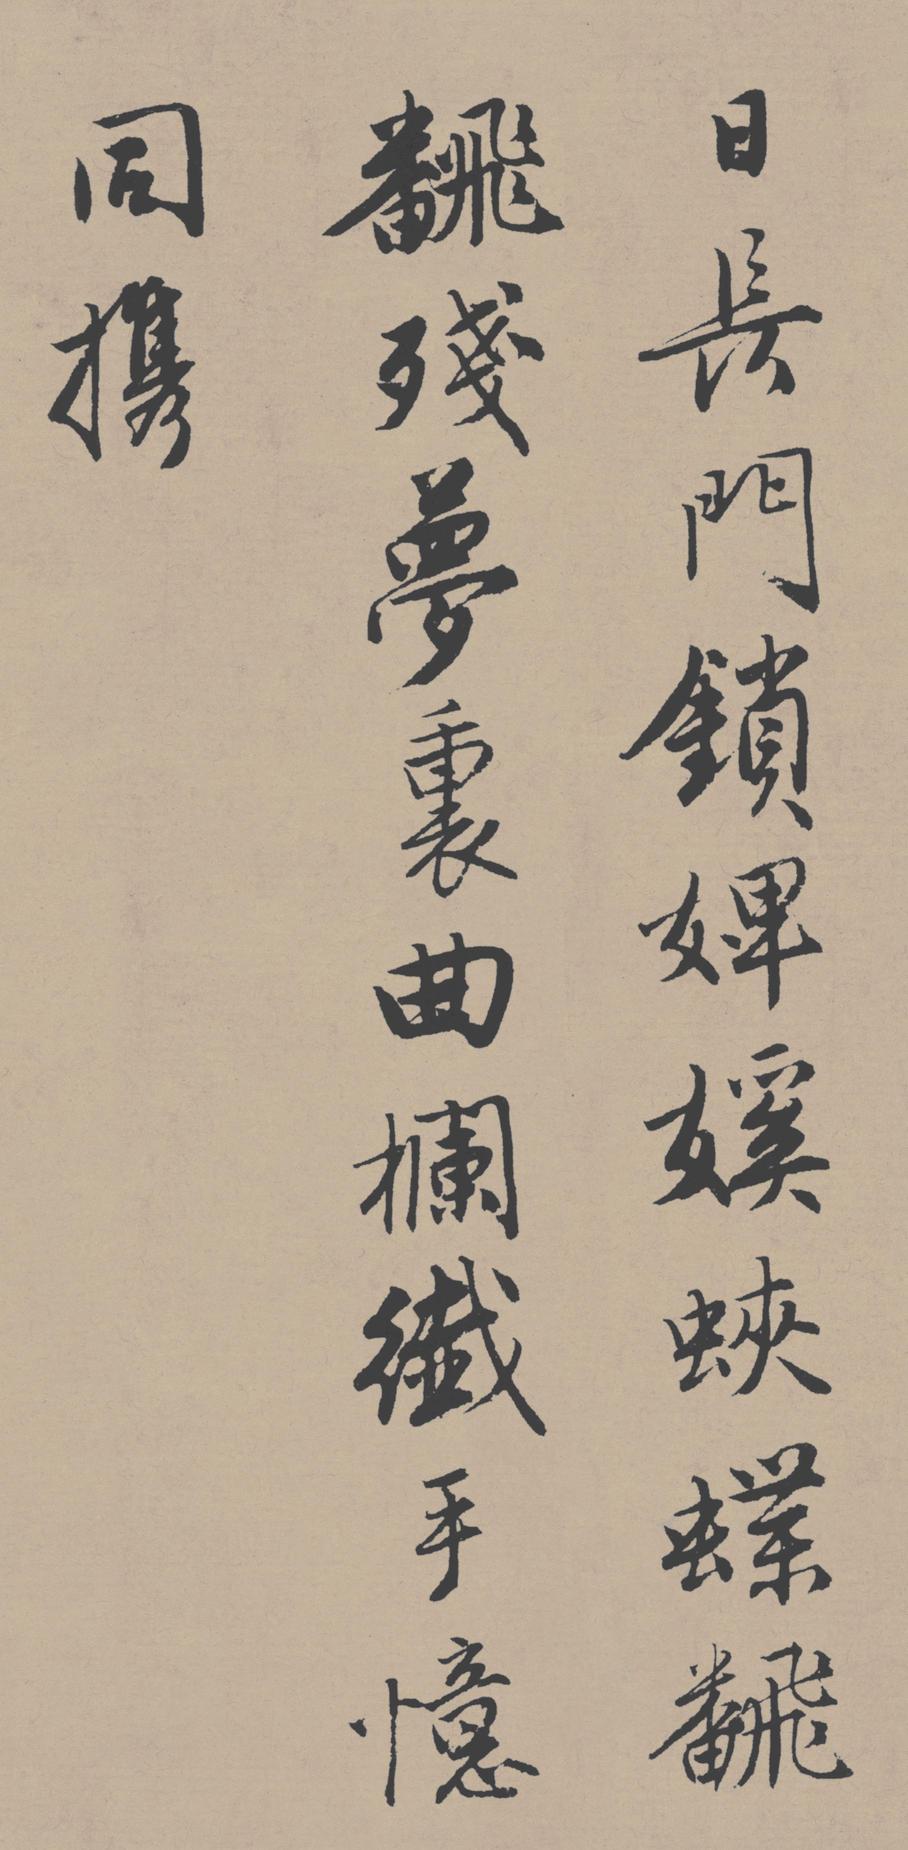 日長門鎖婢媛蛺蝶飜
飜殘夢裏曲欄纖手憶
同攜